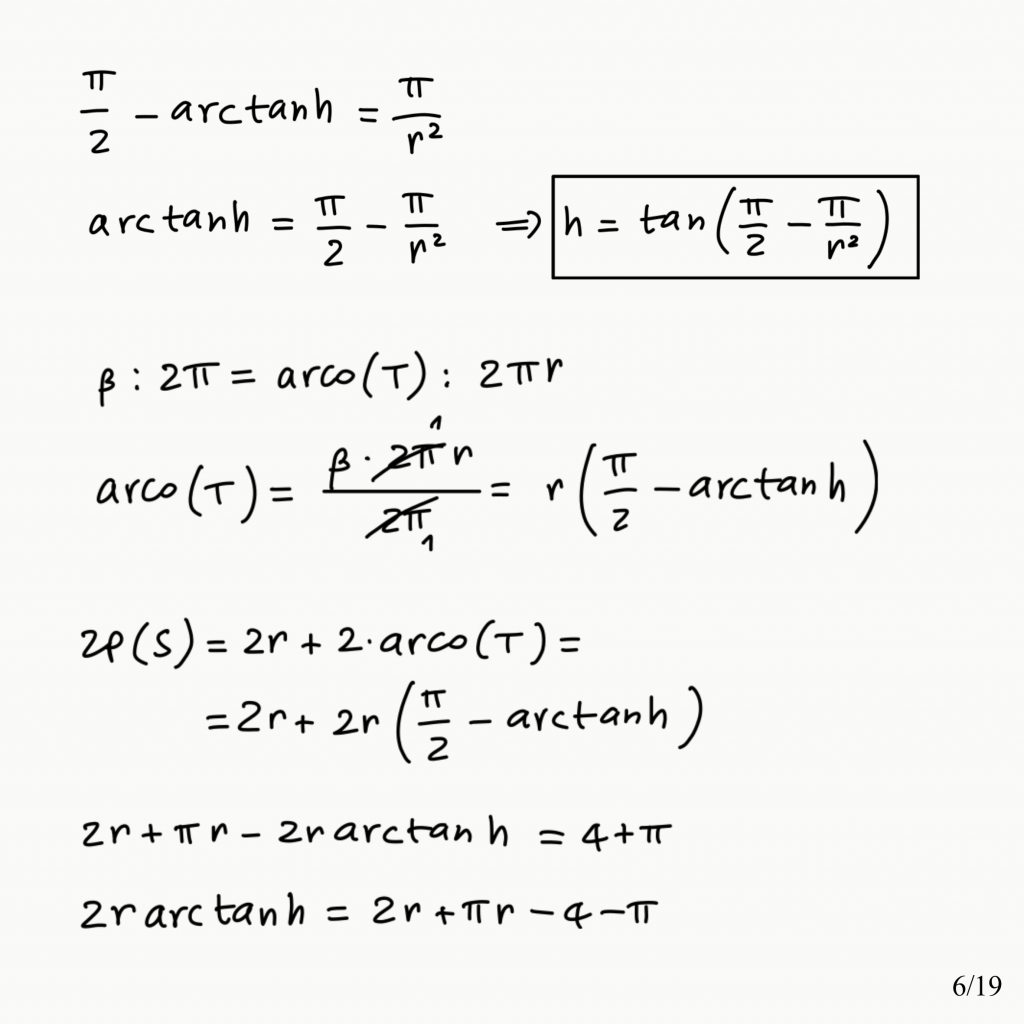 π/2 - arctanh = π/r²
arctanh = π/2 - π/r² ⇒ h = tan(π/2 - π/r²)
β : 2π = arco(T) : 2πr
arco(T) = (β · 2π 1 r)/(2π 1) = r(π/2 - arctanh)
2p(S) = 2r + 2·arco(T) =
= 2r + 2r(π/2 - arctanh)
2r + πr - 2r arctanh = 4 + π
2r arctanh = 2r + πr - 4 - π
6/19